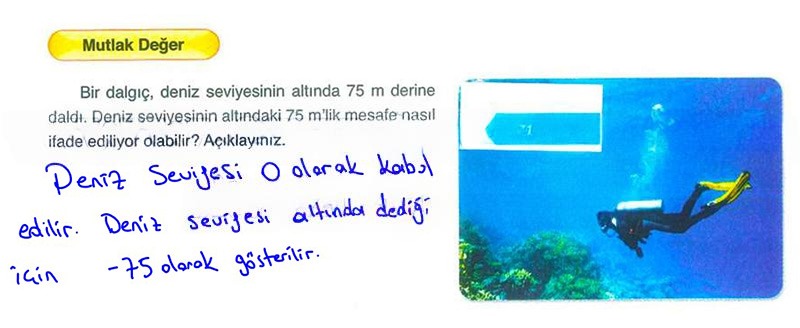 Mutlak Değer
Bir dalgıç, deniz seviyesinin altında 75 m derine
daldı. Deniz seviyesinin altındaki 75 m'lik mesafe nasıl
ifade ediliyor olabilir? Açıklayınız.
Deniz Seviyesi 0 olarak kabul
edilir. Deniz seviyesi altında dediği
için -75 olarak gösterilir.